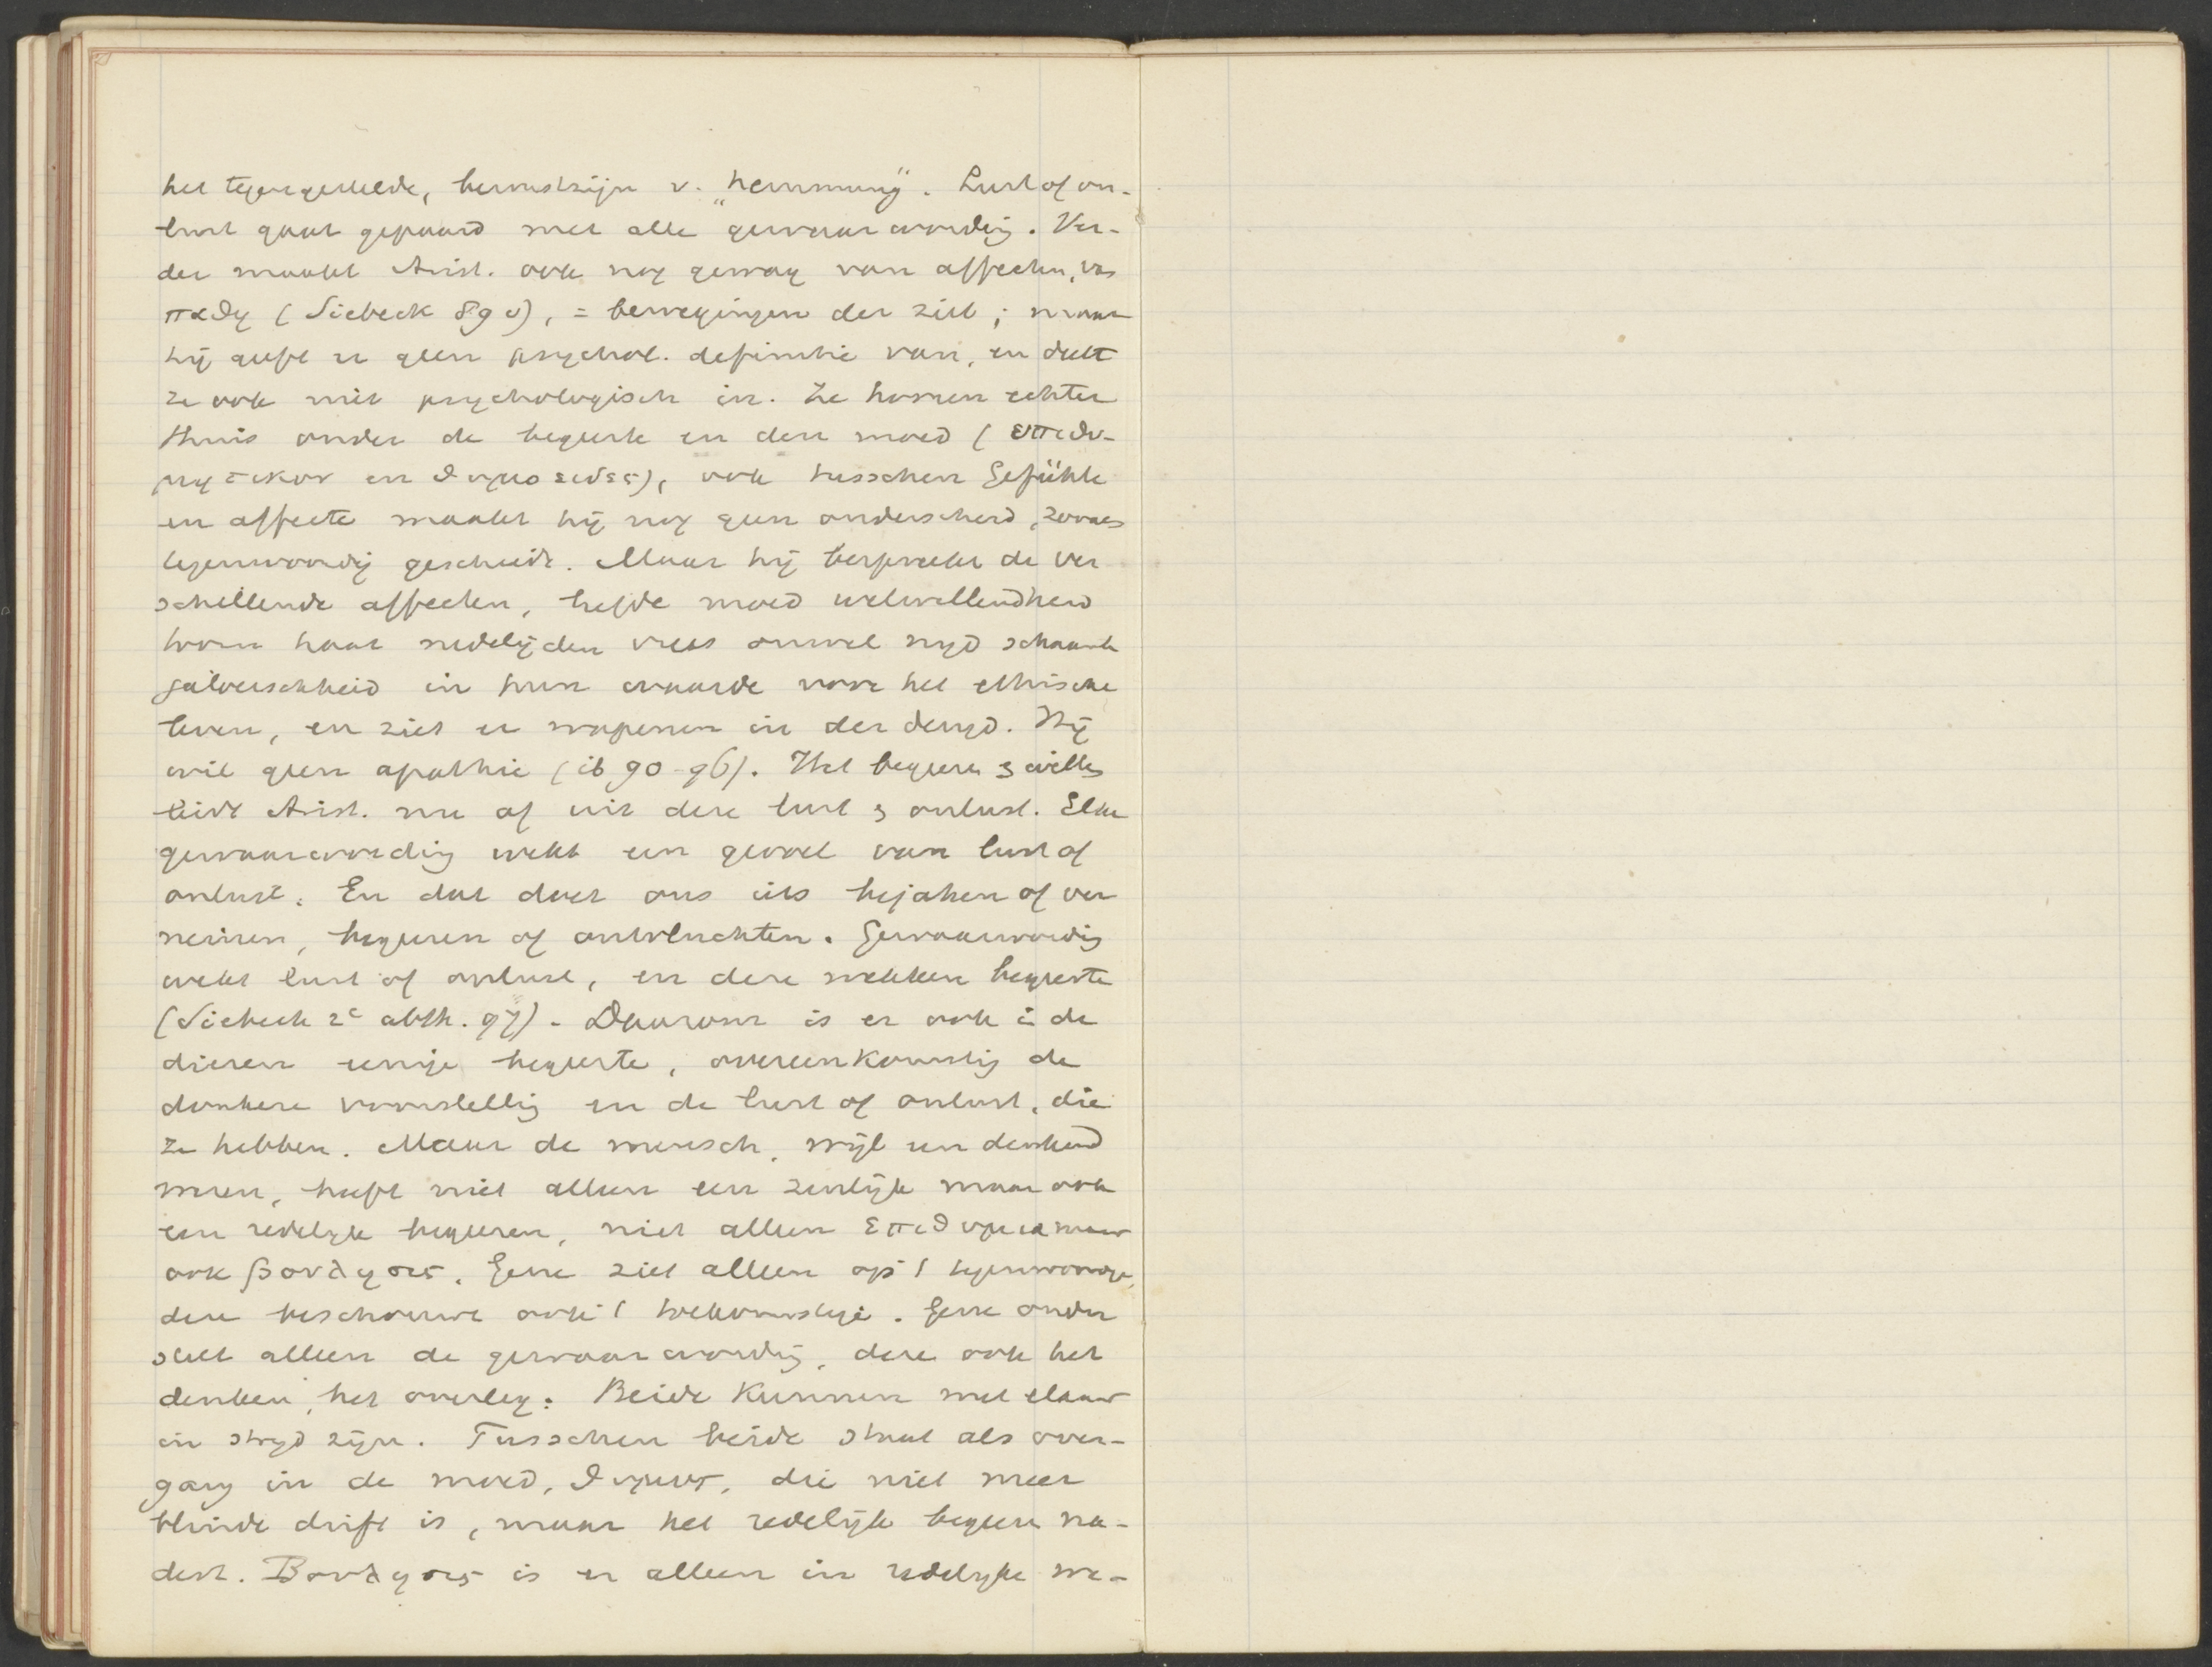 het tegengestelde, bewustzijn v. „Hemmung". Lust of on-
lust gaat gepaard met alle gewaarwording. Ver-
der maakt Arist. ook nog gewag van affecten,
παθη (Siebeck 89 v), = bewegingen der ziel; maar
hij geeft er geen psychol. definitie van, en deelt
ze ook niet psychologisch in. Ze horen echter
thuis onder de begeerte en den moed (επιθυ-
μητικον en θυμοειδες), ook tusschen Gefühle
en affecte maakt hij nog geen onderscheid, zooals
tegenwoordig geschiedt. Maar hij bespreekt de ver
schillende affecten, liefde moed welwillendheid
toorn haat medelijden vrees onwil nijd schaamte
jaloerschheid in hun waarde voor het ethische
leven, en ziet er wapenen in der deugd. Hij
wil geen apathie (ib 90-96). Het begeeren & willen
leidt Arist. nu af uit deze lust & onlust. Elke
gewaarwording wekt een gevoel van lust of
onlust. En dat doet ons iets bejahen of ver
neinen, begeeren of ontvluchten. Gewaarwording
wekt lust of onlust, en deze wekken begeerte
(Siebeck 2e abth. 97). Daarom is er ook i de
dieren eenige begeerte, overeenkomstig de
donkere voorstellig en de lust of onlust, die
ze hebben. Maar de mensch, wijl een denkend
wezen, heeft niet alleen een zinlijk maar ook
een redelijk begeeren, niet alleen επιθυμια maar
ook βουλησις. Gene ziet alleen op 't tegenwoordige,
deze beschouwt ook 't toekomstige. Gene onder
stelt alleen de gewaarwording, deze ook het
denken, het overleg. Beide kunnen met elkaar
in strijd zijn. Tusschen beide staat als over-
gang in de moed, θυμος, die niet meer
blinde drift is, maar het redelijk begeeren na-
dert. Βουλησις is er alleen in redelijke we-